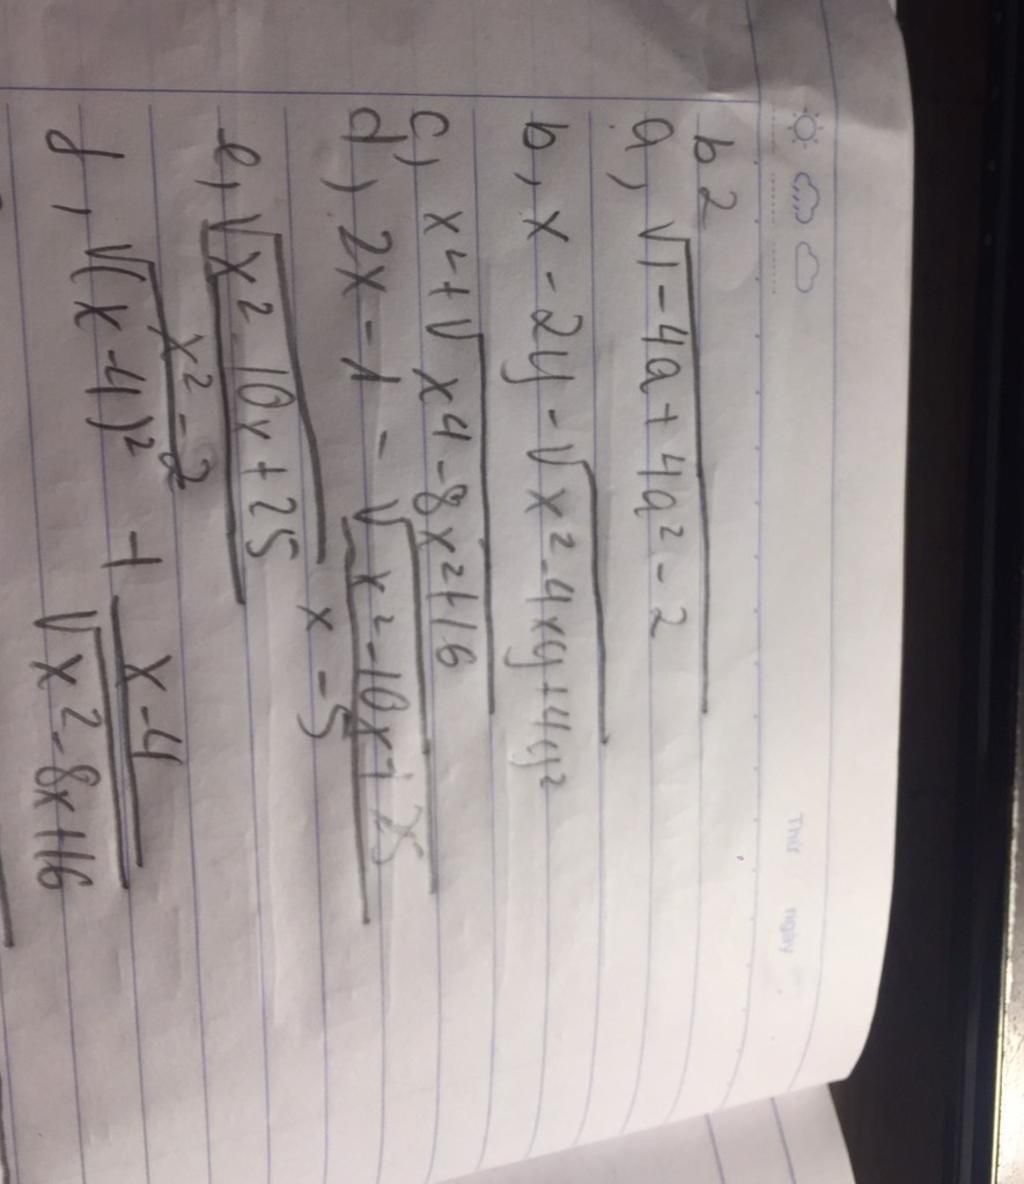 Thứ ngày
b 2
a, √1-4a+4a²-2
b, x-2y-√x²-4xy+4y²
c, x4+√x4-8x²+16
d, 2x-1-√x²-10x+25
x-5
e, √x² 10x+25
x²-2
f, √(x-4)² + x-4
√x²-8x+16